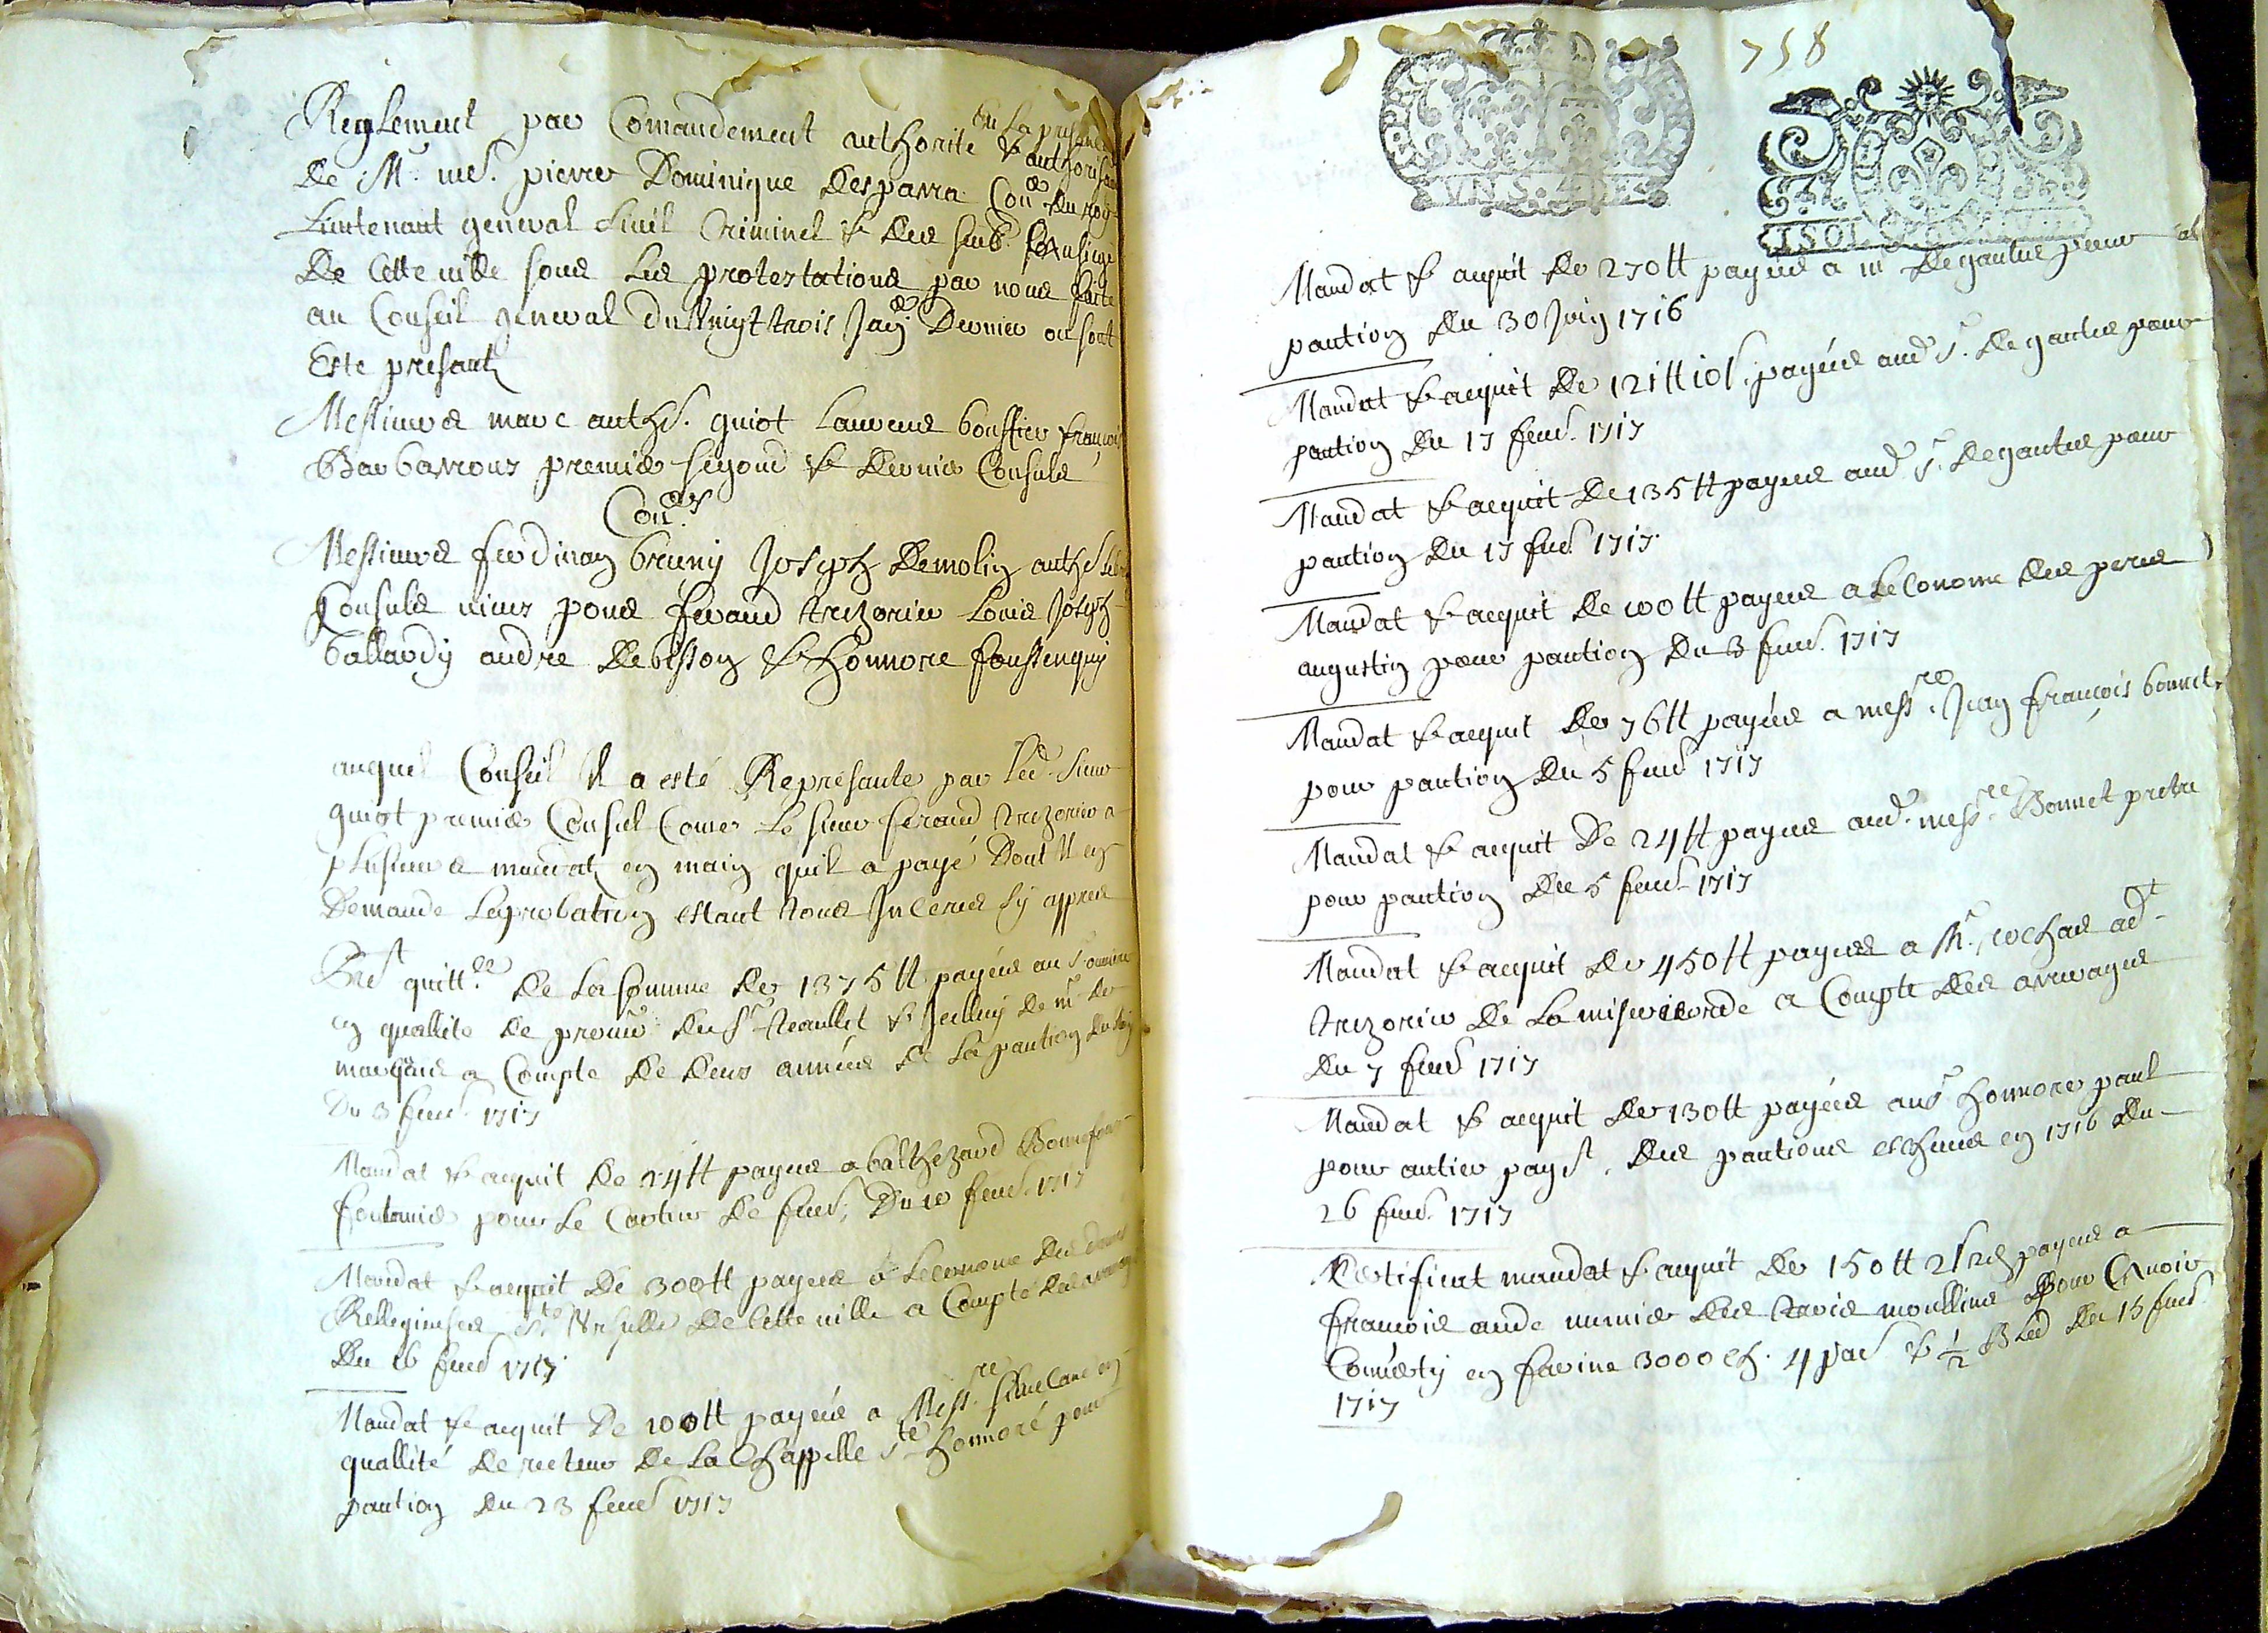 Reglement par Comandement authorité En la presence & authorisation
De Mr. me. pierre Dominique Desparra Con.er Du roy
Lieutenant general Ciuil Criminel & Des sub.
De Cette ville sous Les protestations par nous faite
au Conseil general du Vingt trois Jan.er Dernier ou sont
Este presants
Messieurs marc anth.e guiot Laurens bouffier françois
Barbarroux premier segond & Dernier Consuls
Con.ers
Messieurs ferdinan bruny Joseph Demolin anth.e
Consuls vieux pons feraud trezorier Louis Joseph
ballardy andre Debesson & honnore foussenquy
auquel Conseil Il a esté Représante par led. sieur
guiot premier Consul Come Le sieur feraud trezorier a
plusieurs mandats en main quil a payé Dont Il en
Demande Leprobation estant tous Inserés Cy appres
quitt.ce De La somme De 1375 ₶ payées au s.
en quallite De procur. du sr. & de mr. de
a Compte De Deux années De La pantion
Du 3 feur. 1717
Mandat & acquit De 24 ₶ payées a balthezard Bonnefoux
fontenier pour Le Cartier De feur. Du 10 feur. 1717
Mandat & acquit De 300 ₶ payées a Leconome Des dames
Relligieuses ste. Vrsulle De Cette ville a Compte Des arrerages
Du 16 feur. 1717
Mandat & acquit De 100 ₶ payées a Mess.re en
quallité De recteur De La Chappelle st honnoré pour
pantion Du 23 feur. 1717
758
Mandat & aquit De 270 ₶ payées a mr Degantes pour
pantion Du 30 Juin 1716
Mandat & acquit De 121 ₶ 10 s. payées aud. s. Degantes pour
pantion Du 17 feur. 1717
Mandat & acquit De 135 ₶ payées aud. s. Degantes pour
pantion Du 17 feur. 1717
Mandat & acquit De 100 ₶ payées a Leconome Des peres
augustin pour pantion Du 3 feur. 1717
Mandat & acquit De 76 ₶ payées a mess.re Jean françois bonnet
pour pantion Du 5 feur. 1717
Mandat & acquit De 24 ₶ payées aud. mess.re Bonnet pretre
pour pantion Du 5 feur. 1717
Mandat & acquit De 450 ₶ payées a Mr. rochas adt
trezorier De La misericorde a Compte Des arrerages
Du 7 feur. 1717
Mandat & acquit De 130 ₶ payées au s. honnore paul
pour antier payt. Des pantions escheues en 1716 Du
26 feur. 1717
Certificat mandat & acquit De 150 ₶ 2 s 2 d payées a
francois aude munier Des trois moullins pour avoir
Conuerty en farine 3000 ch. 4 pa. & ½ Bled Du 15 feur.
1717